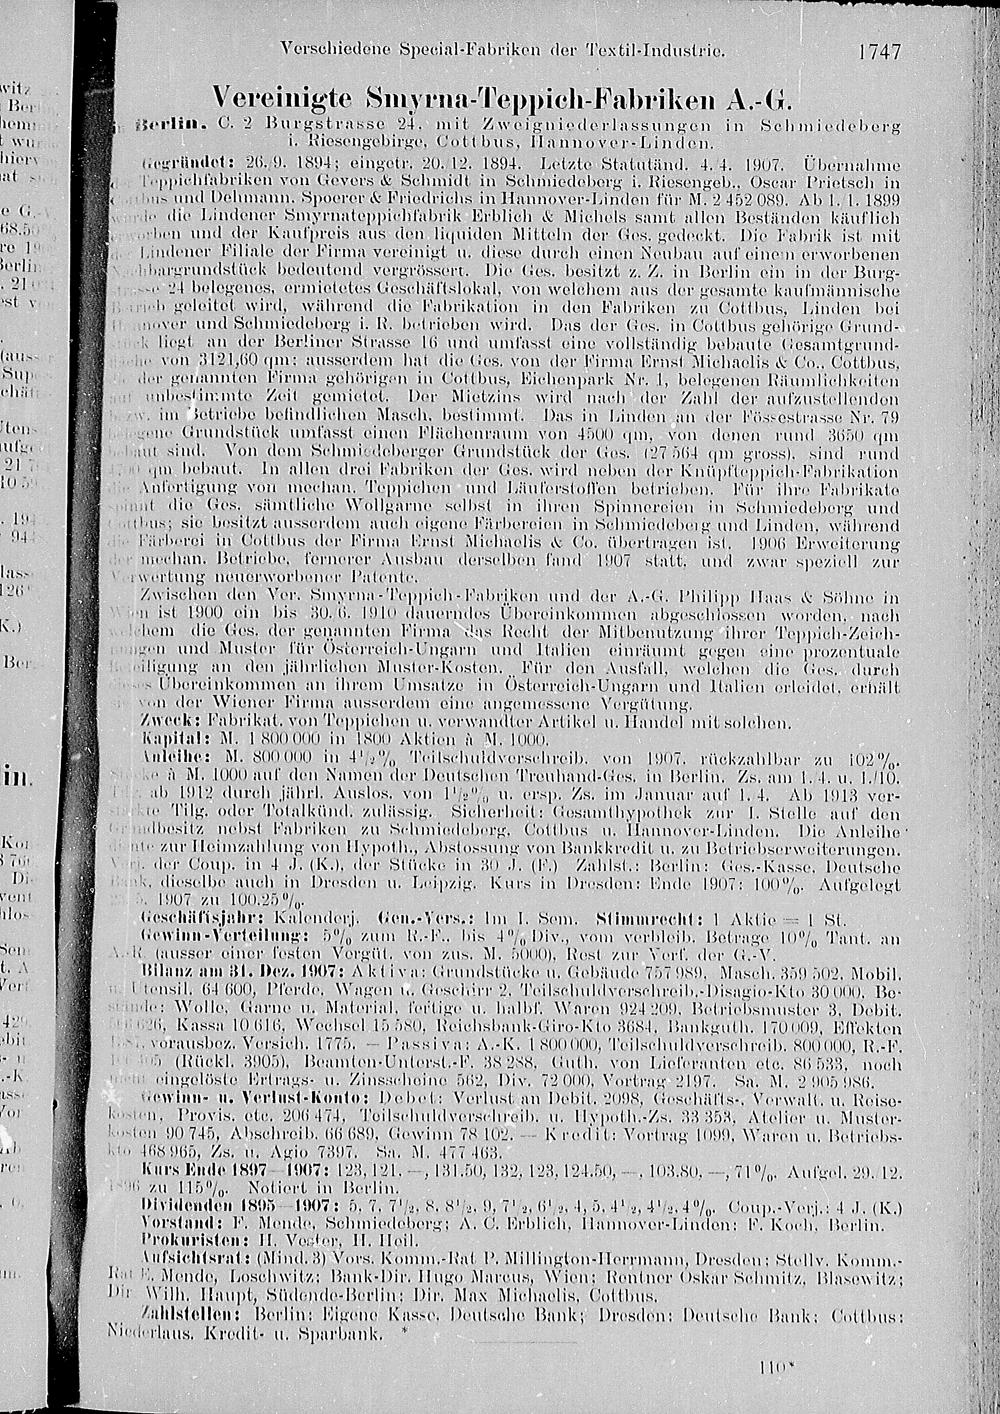 Verschiedene Special-Fabriken der Textil-Industrie. 1747
Vereinigte Smyrna-Teppich-Fabriken A.-G.
in Berlin. C. 2 Burgstrasse 24, mit Zweigniederlassungen in Schmiedeberg
i. Riesengebirge, Cottbus, Hannover-Linden.
Gegründet: 26./9. 1894; eingetr. 20./12. 1894. Letzte Statutänd. 4./4. 1907. Übernahme
der Teppichfabriken von Gevers & Schmidt in Schmiedeberg i. Riesengeb., Oscar Prietsch in
Cottbus und Dehmann, Spoerer & Friedrichs in Hannover-Linden für M. 2 452 089. Ab 1./1. 1899
wurde die Lindener Smyrnateppichfabrik Erblich & Michels samt allen Beständen käuflich
erworben und der Kaufpreis aus den liquiden Mitteln der Ges. gedeckt. Die Fabrik ist mit
der Lindener Filiale der Firma vereinigt u. diese durch einen Neubau auf einem erworbenen
Nachbargrundstück bedeutend vergrössert. Die Ges. besitzt z. Z. in Berlin ein in der Burg-
strasse 24 belegenes, ermietetes Geschäftslokal, von welchem aus der gesamte kaufmännische
Betrieb geleitet wird, während die Fabrikation in den Fabriken zu Cottbus, Linden bei
Hannover und Schmiedeberg i. R. betrieben wird. Das der Ges. in Cottbus gehörige Grund-
stück liegt an der Berliner Strasse 16 und umfasst eine vollständig bebaute Gesamtgrund-
fläche von 3121,60 qm; ausserdem hat die Ges. von der Firma Ernst Michaelis & Co., Cottbus,
die der genannten Firma gehörigen in Cottbus, Eichenpark Nr. 1, belegenen Räumlichkeiten
auf unbestimmte Zeit gemietet. Der Mietzins wird nach der Zahl der aufzustellenden
bezw. im Betriebe befindlichen Masch. bestimmt. Das in Linden an der Fössestrasse Nr. 79
belegene Grundstück umfasst einen Flächenraum von 4500 qm, von denen rund 3650 qm
bebaut sind. Von dem Schmiedeberger Grundstück der Ges. (27 564 qm gross), sind rund
qm bebaut. In allen drei Fabriken der Ges. wird neben der Knüpfteppich-Fabrikation
die Anfertigung von mechan. Teppichen und Läuferstoffen betrieben. Für ihre Fabrikate
spinnt die Ges. sämtliche Wollgarne selbst in ihren Spinnereien in Schmiedeberg und
Cottbus; sie besitzt ausserdem auch eigene Färbereien in Schmiedeberg und Linden, während
die Färberei in Cottbus der Firma Ernst Michaelis & Co. übertragen ist. 1906 Erweiterung
der mechan. Betriebe, fernerer Ausbau derselben fand 1907 statt, und zwar speziell zur
Verwertung neuerworbener Patente.
Zwischen den Ver. Smyrna-Teppich-Fabriken und der A.-G. Philipp Haas & Söhne in
Wien ist 1900 ein bis 30./6. 1910 dauerndes Übereinkommen abgeschlossen worden, nach
welchem die Ges. der genannten Firma das Recht der Mitbenutzung ihrer Teppich-Zeich-
nungen und Muster für Österreich-Ungarn und Italien einräumt gegen eine prozentuale
Beteiligung an den jährlichen Muster-Kosten. Für den Ausfall, welchen die Ges. durch
dieses Übereinkommen an ihrem Umsatze in Österreich-Ungarn und Italien erleidet, erhält
sie von der Wiener Firma ausserdem eine angemessene Vergütung.
Zweck: Fabrikat. von Teppichen u. verwandter Artikel u. Handel mit solchen.
Kapital: M. 1 800 000 in 1800 Aktien à M. 1000.
Anleihe: M. 800 000 in 4 1/2 % Teilschuldverschreib. von 1907, rückzahlbar zu 102 %.
Stücke à M. 1000 auf den Namen der Deutschen Treuhand-Ges. in Berlin. Zs. am 1./4. u. 1./10.
Tilg. ab 1912 durch jährl. Auslos. von 1 1/2 % u. ersp. Zs. im Januar auf 1./4. Ab 1913 ver-
stärkte Tilg. oder Totalkünd. zulässig. Sicherheit: Gesamthypothek zur I. Stelle auf den
Grundbesitz nebst Fabriken zu Schmiedeberg, Cottbus u. Hannover-Linden. Die Anleihe
diente zur Heimzahlung von Hypoth., Abstossung von Bankkredit u. zu Betriebserweiterungen.
Verj. der Coup. in 4 J. (K.), der Stücke in 30 J. (F.) Zahlst.: Berlin: Ges.-Kasse, Deutsche
Bank, dieselbe auch in Dresden u. Leipzig. Kurs in Dresden: Ende 1907: 100 %. Aufgelegt
5. 1907 zu 100.25 %.
Geschäftsjahr: Kalenderj. Gen.-Vers.: Im I. Sem. Stimmrecht: 1 Aktie = 1 St.
Gewinn-Verteilung: 5 % zum R.-F., bis 4 % Div., vom verbleib. Betrage 10 % Tant. an
A.-R. (ausser einer festen Vergüt. von zus. M. 5000), Rest zur Verf. der G.-V.
Bilanz am 31. Dez. 1907: Aktiva: Grundstücke u. Gebäude 757 989, Masch. 359 502, Mobil.
u. Utensil. 64 600, Pferde, Wagen u. Geschirr 2, Teilschuldverschreib.-Disagio-Kto 30 000, Be-
stände: Wolle, Garne u. Material, fertige u. halbf. Waren 924 209, Betriebsmuster 3, Debit.
626, Kassa 10 616, Wechsel 15 580, Reichsbank-Giro-Kto 3684, Bankguth. 170 009, Effekten
vorausbez. Versich. 1775. — Passiva: A.-K. 1 800 000, Teilschuldverschreib. 800 000, R.-F.
(Rückl. 3905), Beamten-Unterst.-F. 38 288, Guth. von Lieferanten etc. 86 533, noch
nicht eingelöste Ertrags- u. Zinsscheine 562, Div. 72 000, Vortrag 2197. Sa. M. 2 905 986.
Gewinn- u. Verlust-Konto: Debet: Verlust an Debit. 2098, Geschäfts-, Verwalt. u. Reise-
kosten, Provis. etc. 206 474, Teilschuldverschreib. u. Hypoth.-Zs. 33 353, Atelier u. Muster-
kosten 90 745, Abschreib. 66 689, Gewinn 78 102. — Kredit: Vortrag 1099, Waren u. Betriebs-
kto 468 965, Zs. u. Agio 7397. Sa. M. 477 463.
Kurs Ende 1897—1907: 123, 121, —, 131.50, 132, 123, 124.50, —, 103.80, —, 71 %. Aufgel. 29./12.
1896 zu 115 %. Notiert in Berlin.
Dividenden 1895—1907: 5, 7, 7 1/2, 8, 8 1/2, 9, 7 1/2, 6 1/2, 4, 5, 4 1/2, 4 1/2, 4 %. Coup.-Verj.: 4 J. (K.)
Vorstand: F. Mende, Schmiedeberg; A. C. Erblich, Hannover-Linden; F. Koch, Berlin.
Prokuristen: H. Vester, H. Heil.
Aufsichtsrat: (Mind. 3) Vors. Komm.-Rat P. Millington-Herrmann, Dresden; Stellv. Komm.-
Rat E. Mende, Loschwitz; Bank-Dir. Hugo Marcus, Wien; Rentner Oskar Schmitz, Blasewitz;
Dir. Wilh. Haupt, Südende-Berlin; Dir. Max Michaelis, Cottbus.
Zahlstellen: Berlin: Eigene Kasse, Deutsche Bank; Dresden: Deutsche Bank; Cottbus:
Niederlaus. Kredit- u. Sparbank. *
110*